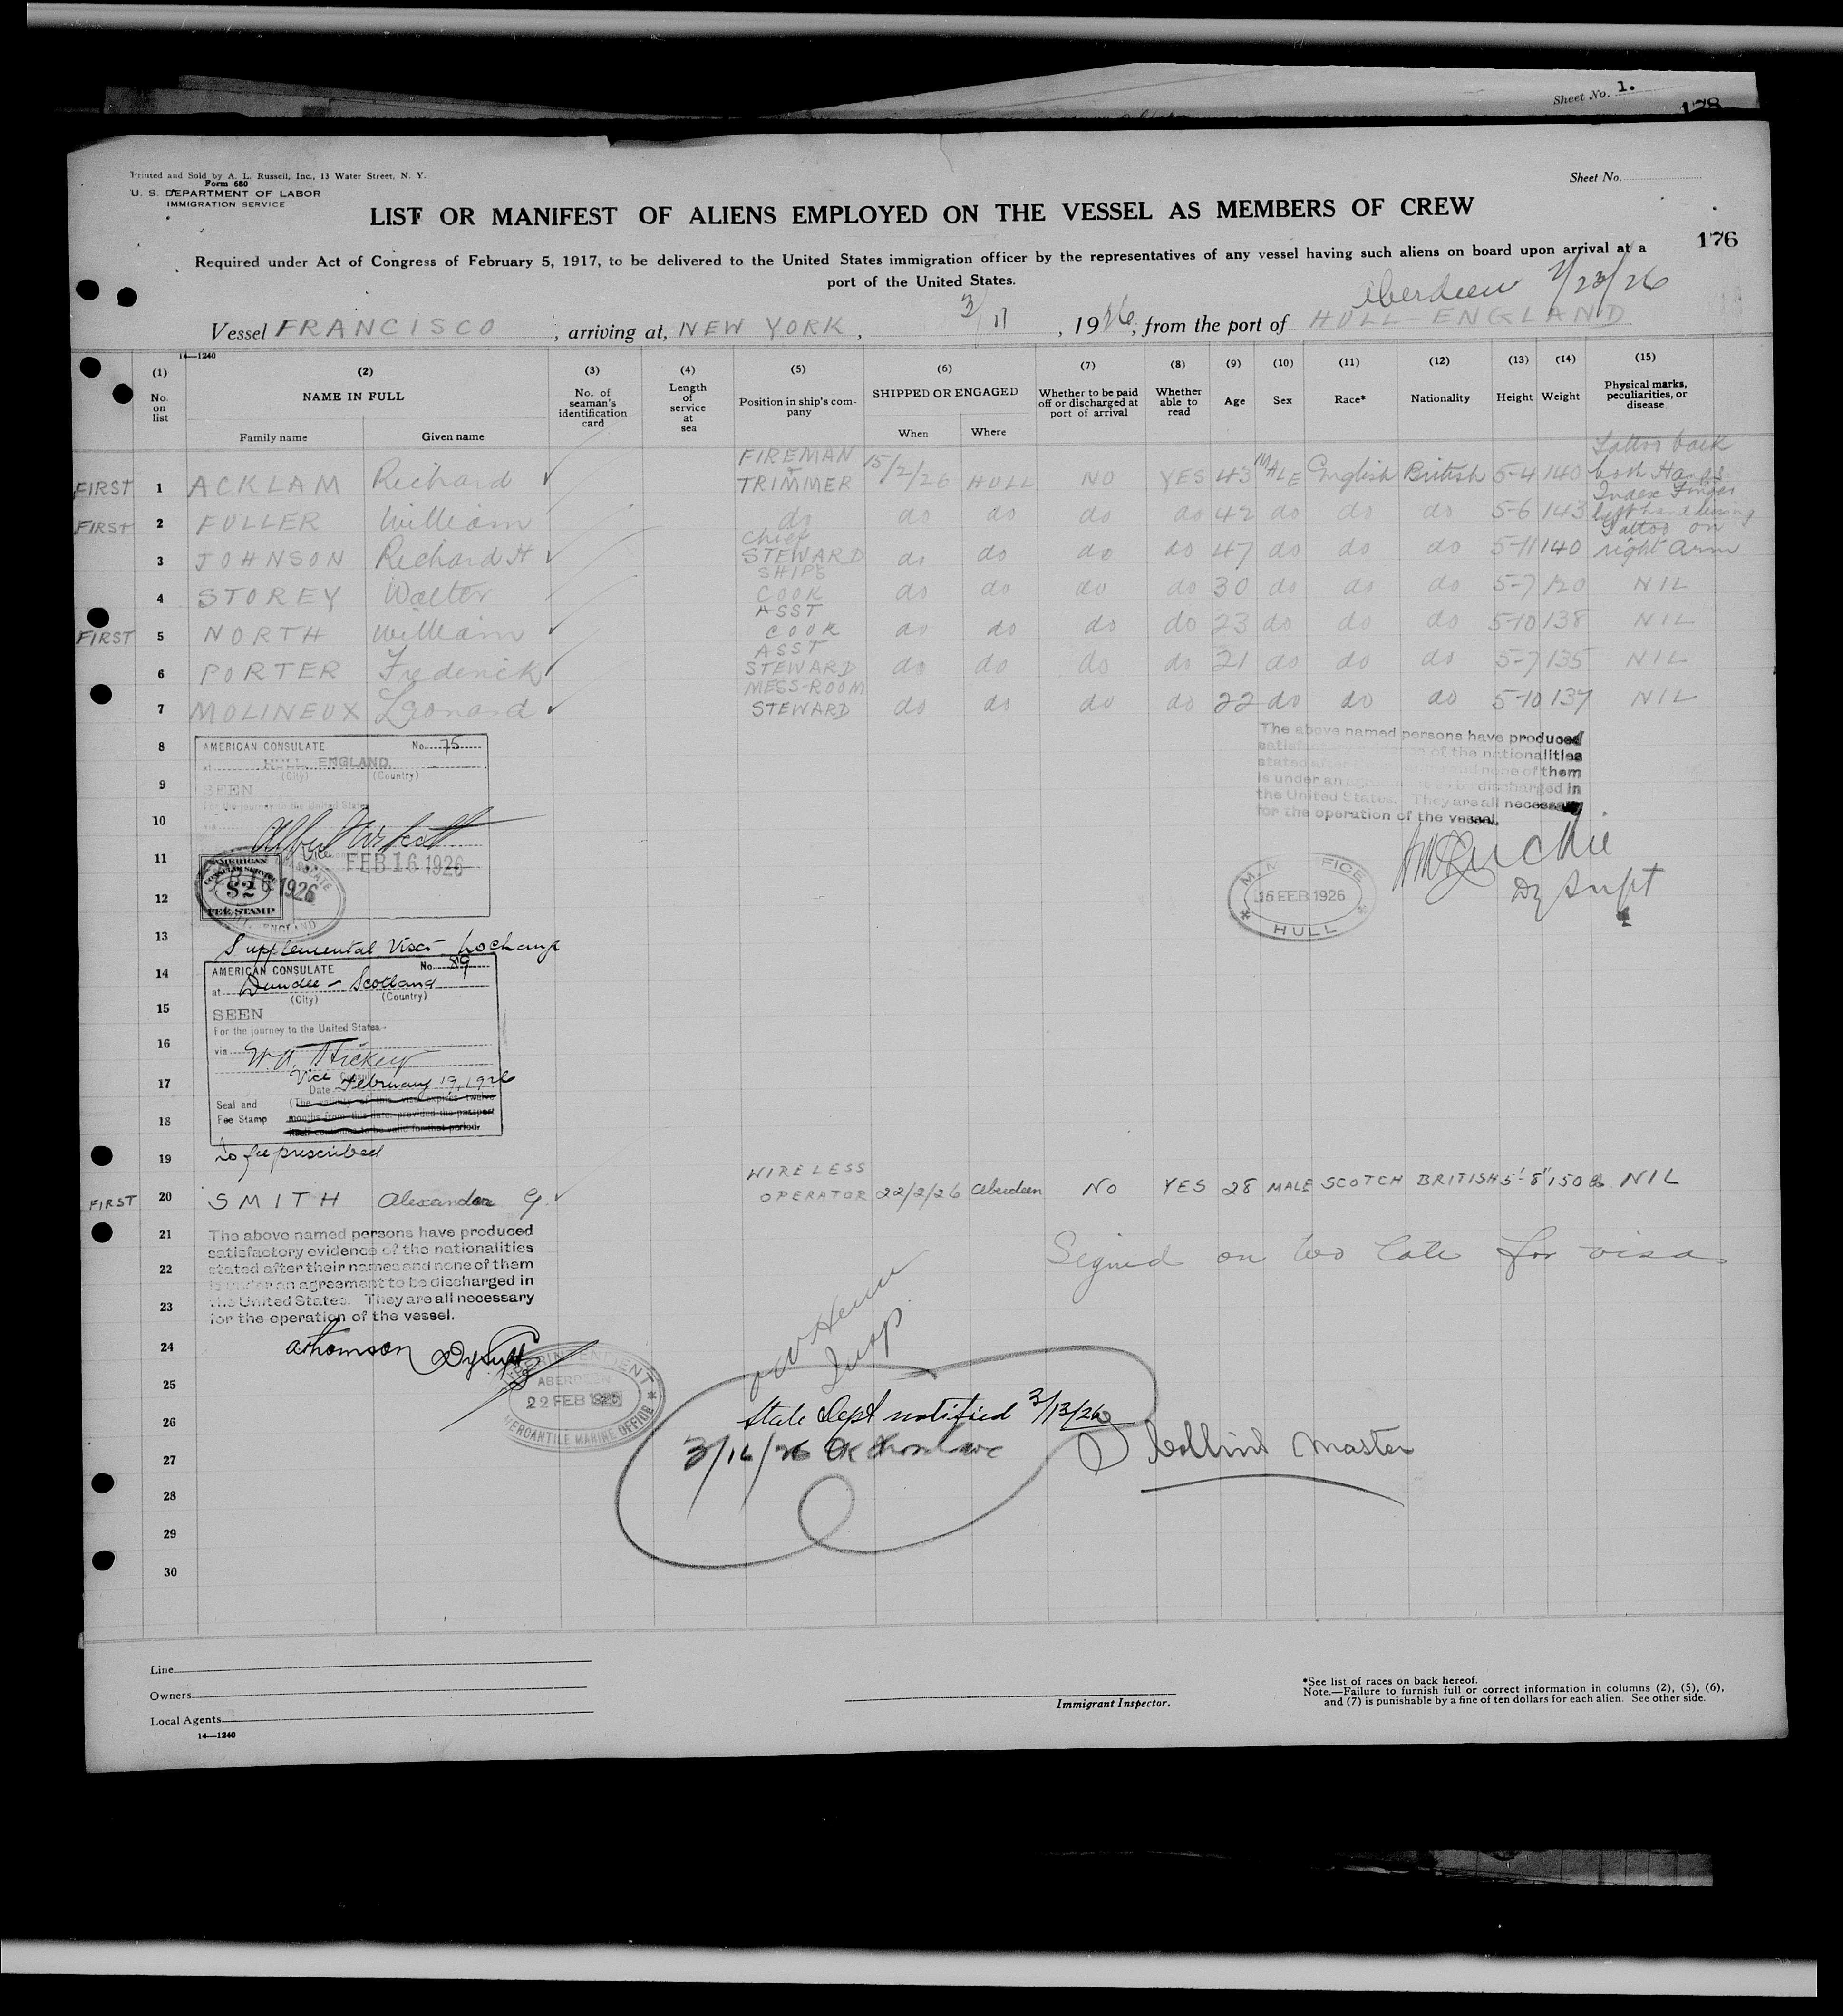 Sheet No. 1.
178
Printed and Sold by A. L. Russell, Inc., 13 Water Street, N. Y.
Form 680
U. S. DEPARTMENT OF LABOR
IMMIGRATION SERVICE
Sheet No.
LIST OR MANIFEST OF ALIENS EMPLOYED ON THE VESSEL AS MEMBERS OF CREW
176
Required under Act of Congress of February 5, 1917, to be delivered to the United States immigration officer by the representatives of any vessel having such aliens on board upon arrival at a
port of the United States.
Aberdeen 2/23/26
Vessel FRANCISCO, arriving at, NEW YORK, 3/11, 1926, from the port of HULL ENGLAND
14—1240
(1) (2) (3) (4) (5) (6) (7) (8) (9) (10) (11) (12) (13) (14) (15)
No. on list NAME IN FULL No. of seaman's identification card Length of service at sea Position in ship's company SHIPPED OR ENGAGED Whether to be paid off or discharged at port of arrival Whether able to read Age Sex Race* Nationality Height Weight Physical marks, peculiarities, or disease
Family name Given name When Where
FIRST 1 ACKLAM Richard FIREMAN & TRIMMER 15/2/26 HULL NO YES 43 MALE English British 5-4 140 Tattoo back both Hands
FIRST 2 FULLER William do do do do do 42 do do do 5-6 143 Index Finger left hand
3 JOHNSON Richard H Chief STEWARD do do do do 47 do do do 5-11 140 Tattoo on right arm
4 STOREY Walter SHIPS COOK do do do do 30 do do do 5-7 120 NIL
FIRST 5 NORTH William ASST COOK do do do do 23 do do do 5-10 138 NIL
6 PORTER Frederick ASST STEWARD do do do do 21 do do do 5-7 135 NIL
7 MOLINEUX Leonard MESS-ROOM STEWARD do do do do 22 do do do 5-10 137 NIL
8
9
10
11
12
13
14
15
16
17
18
19
AMERICAN CONSULATE No. 75
at HULL, ENGLAND.
(City) (Country)
SEEN
For the journey to the United States
via
Vice
FEB 16 1926
AMERICAN
CONSULAR SERVICE
$2
FEE STAMP
1926
ENGLAND
The above named persons have produced
satisfactory evidence of the nationalities
stated after their names and none of them
is under an agreement to be discharged in
the United States. They are all necessary
for the operation of the vessel.
Dy Supt
16 FEB 1926
HULL
Supplemental Visa - no charge
AMERICAN CONSULATE No. 89
at Dundee - Scotland
(City) (Country)
SEEN
For the journey to the United States
via
W. A. Hickey
Vice Consul
Date February 19, 1926
Seal and Fee Stamp
(The validity of this visa expires twelve
months from this date, provided the passport
itself continues to be valid for that period.
No fee prescribed
FIRST 20 SMITH Alexander G. WIRELESS OPERATOR 22/2/26 Aberdeen NO YES 28 MALE SCOTCH BRITISH 5'-8" 150 lbs NIL
21
22
23
24
25
26
27
28
29
30
Signed on too late for visa
The above named persons have produced
satisfactory evidence of the nationalities
stated after their names and none of them
is under an agreement to be discharged in
the United States. They are all necessary
for the operation of the vessel.
A Thomson Dy Supt
SUPERINTENDENT
ABERDEEN
22 FEB 1926
MERCANTILE MARINE OFFICE
Insp
State Dept notified 3/13/26
3/16/26 OK
Collins Master
Line
Owners
Local Agents
14—1240
Immigrant Inspector.
*See list of races on back hereof.
Note.—Failure to furnish full or correct information in columns (2), (5), (6),
and (7) is punishable by a fine of ten dollars for each alien. See other side.